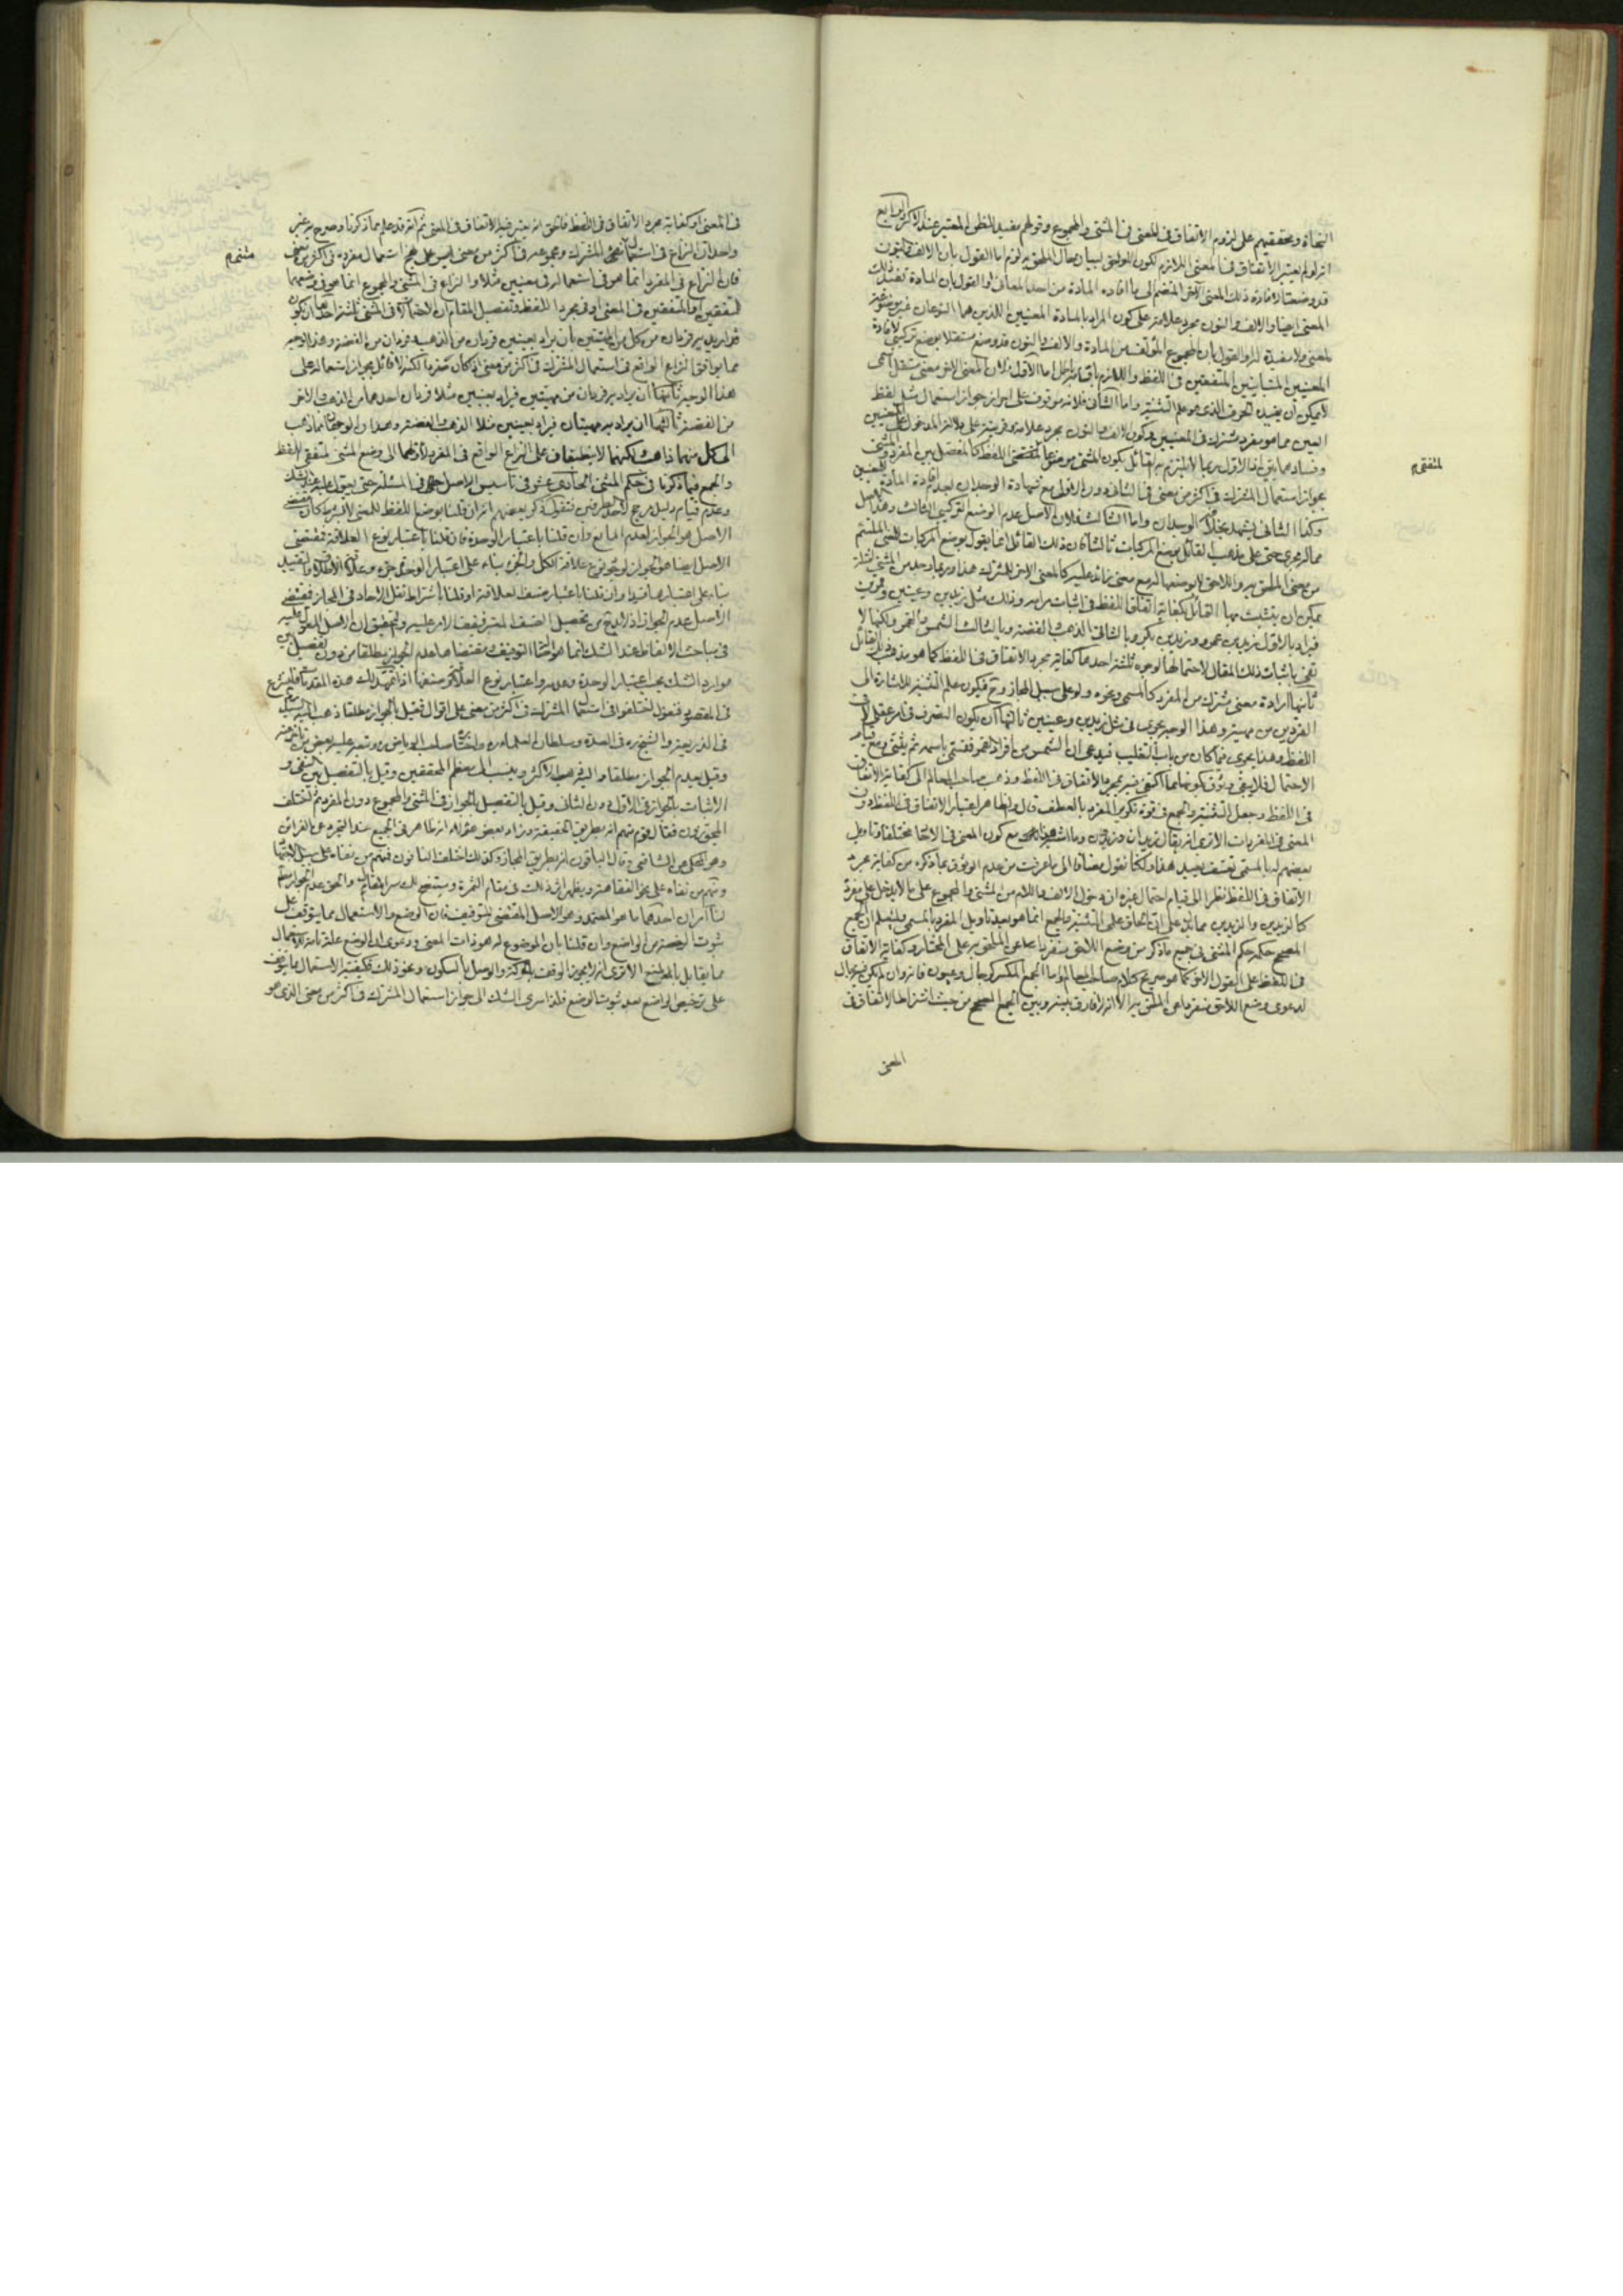 النحاة ومحققيهم على لزوم الاتفاق فى المعنى فى المثنى والمجموع وقولهم مفيد للظن المعتبر عند الاكثر الرابع
انه لو لم يعتبر الاتفاق فى المعنى اللازم لكون اللواحق لبيان حال الملحق به لزم اما القول بان الالف والنون
قد وضعتا لافادة ذلك المعنى الاخر المنضم الى ما افاده المادة من احد المعانى او القول بان المادة تفيد ذلك
المعنى ايضا والالف والنون مجرد علامة على كون المراد بالمادة المعنيين اللذين هما النوعان غير موضوعة
لمعنى ولا مفيدة له او القول بان المجموع المؤتلف من المادة والالف والنون قد وضع مستقلا بوضع تركيبى لافادة
المعنيين المتباينين المتفقين فى اللفظ واللازم باقسامه باطل اما الاول فلان المعنى الاخر معنى مستقل اسمى
لا يمكن ان يفيده الحرف الذى هو علم التثنية واما الثانى فلانه موقوف على احراز جواز استعمال مثل لفظ
العين مما هو مفرد مشترك فى المعنيين وكون الالف والنون مجرد علامة وقرينة على
بجواز استعمال المشترك فى اكثر من معنى فى الثانى دون الاول مع شهادة الوجدان بعدم افادة المادة للمعنيين
وكذا الثانى يشهد بخلافه الوجدان واما الثالث فلان الاصل عدم الوضع التركيبى الثالث وهذا الاصل
مما لم يجرى حتى على مذهب القائل بوضع المركبات
من معنى الملحق به واللاحق لا بوضعها لهما مع معنى زائد عليه كالمعنى الاخر للمشترك هذا
يمكن ان يتشبث بها القائل بكفاية اتفاق اللفظ فى اثبات مرامه وذلك مثل زيدين وعينين وقمرين
فيراد بالاول زيد بن عمرو وزيد بن بكر وبالثانى الذهب والفضة وبالثالث الشمس والقمر ولكنها لا
تفى باثبات ذلك المقال لاحتمالها لوجوه ثلثة احدها كفاية مجرد الاتفاق فى اللفظ كما هو مذهب القائل
ثانيها ارادة معنى مشترك من المفرد كالمسمى ونحوه ولو على سبيل المجاز وح فيكون علم التثنية للاشارة الى
الفردين من مهيته وهذا الوجه يجرى فى مثل زيدين وعينين ثالثها ان يكون التصرف فى امر عقلى لا فى
اللفظ وهذا يجرى فيما كان من باب التغليب فيدعى ان الشمس من افراد القمر فتسمى باسمه ثم يثنى ومع قيام
الاحتمال فلا يبقى وثوق بكونها مما اكتفى فيه بمجرد الاتفاق فى اللفظ وذهب صاحب المعالم الى كفاية الاتفاق
فى اللفظ وجعل التثنية والجمع فى قوة تكرير المفرد بالعطف قال والظاهر اعتبار الاتفاق فى اللفظ دون
المعنى فى المفردات الا ترى انه يقال زيدان وزيدون وما اشبه هذا مع كون المعنى فى الاحاد مختلفا وتاويل
بعضهم له بالمسمى تعسف بعيد هذا ولكنا نقول مضافا الى ما عرفت من عدم الوثوق بما ذكره من كفاية مجرد
الاتفاق فى اللفظ نظرا الى قيام احتمال غيره ان دخول الالف واللام من المثنى والمجموع على ما لا يدخل على مفرده
كالزيدين والزيدين مما يدل على ان الحاق علم التثنية والجمع انما هو بعد تاويل المفرد بالمسمى وليعلم ان الجمع
المصحح حكمه حكم المثنى فى جميع ما ذكر من وضع اللاحق منفردا عن الملحق به على المختار وكفاية الاتفاق
فى اللفظ على القول الاخر كما هو صريح كلام صاحب المعالم واما الجمع المكسر كرجال وعيون فانه وان لم يكن فيه مجال
لدعوى وضع اللاحق منفردا عن الملحق به الا انه لا فارق بينه وبين الجمع المصحح من حيث اشتراط الاتفاق فى
المعنى
لمتفقى م
فى المعنى او كفاية مجرد الاتفاق فى اللفظ فالحق انه يعتبر فيه الاتفاق فى المعنى ثم انه قد علم مما ذكرنا وصرح به غير
واحد ان النزاع فى استعمال مثنى المشترك ومجموعه فى اكثر من معنى ليس على نهج استعمال مفرده فى اكثر من معنى
فان النزاع فى المفرد انما هو فى استعماله فى معنيين مثلا والنزاع فى المثنى والمجموع انما هو فى وضعهما
لمتفقين او المتفقين فى المعنى او فى مجرد اللفظ وتفصيل المقام ان الاحتمالات فى المثنى ثلثة احدها ان يكون
قد اريد به فردان من كل من المهيتين بأن يراد بعينين فردان من الذهب وفردان من الفضة وهذا الوجه
مما يوافق النزاع الواقع فى استعمال المشترك فى اكثر من معنى اذ كان مفردا لكنه لا قائل بجواز استعماله على
هذا الوجه ثانيها ان يراد به فردان من مهيتين فيراد بعينين مثلا فردان احدهما من الذهب والاخر
من الفضة ثالثها ان يراد به مهيتان فيراد بعينين مثلا الذهب والفضة وهذان الوجهان مما ذهب
الى كل منهما ذاهب لكنهما لا ينطبقان على النزاع الواقع فى المفرد لأولهما الى وضع المثنى لمتفقى اللفظ
والجمع فيما ذكرنا فى حكم المثنى الحادى عشر فى تأسيس الاصل فى المسئلة حتى يعول عليه عند الشك
وعدم قيام دليل مرجح لاحد الطرفين فنقول ذكر بعضهم انه ان قلنا بوضع اللفظ للمعنى لا بشرط كان مقتضى
الاصل هو الجواز لعدم المانع وان قلنا باعتبار الوحدة فان قلنا باعتبار نوع العلاقة فمقتضى
الاصل ايضا هو الجواز لوجود نوع علاقة الكل والجزء بناء على اعتبار الوحدة جزء وعلاقة الاطلاق والتقييد
بناء على اعتبارها قيدا وان قلنا باعتبار صنف العلاقة او قلنا باشتراط نقل الاحاد فى المجاز فمقتضى
الاصل عدم الجواز اذ لا بد ح من تحصيل الصنف المعتبر فيقف الامر عليه والتحقيق ان الاصل المعول عليه
فى مباحث الالفاظ عند الشك انما هو التوقيف ومقتضاه عدم الجواز مطلقا من دون تفصيل بين
موارد الشك بحسب اعتبار الوحدة وعدمه واعتبار نوع العلاقة وصنفها اذا تمهد لك هذه المقدمات فلنشرع
فى المقصود فنقول اختلفوا فى استعمال المشترك فى اكثر من معنى على اقوال فقيل بالجواز مطلقا ذهب اليه السيد
فى الذريعة والشيخ ره فى العدة وسلطان العلماء ره واختاره صاحب الرياض ره وتبعه عليه بعض من تأخر عنه
وقيل بعدم الجواز مطلقا واليه ذهب الاكثر وينسب الى معظم المحققين وقيل بالتفصيل بين النفى و
الاثبات بالجواز فى الاول دون الثانى وقيل بالتفصيل بالجواز فى المثنى والمجموع دون المفرد ثم اختلف
المجوزون فقال قوم منهم انه بطريق الحقيقة وزاد بعض هؤلاء انه ظاهر فى الجميع عند التجرد عن القرائن
وهو المحكى عن الشافعى وقال الباقون انه بطريق المجاز وكذلك اختلف المانعون فمنهم من نفاه على سبيل
ومنهم من نفاه على نحو الفقاهة ويظهر اثر ذلك فى مقام الثمرة وسيتضح لك سر المقالين والحق عدم الجواز مطلقا
لنا امران احدهما ما هو المعتمد وهو الاصل المقتضى للتوقيف فان الوضع والاستعمال مما يتوقف على
ثبوت الرخصة من الواضع وان قلنا بان الموضوع له هو ذات المعنى ودعوى ان الوضع علة تامة للاستعمال
مما يقابل بالمنع الا ترى انه لا يجوز الوقف بالحركة والوصل بالسكون ونحو ذلك فكيفية الاستعمال مما يتوقف
على ترخيص الواضع بعد ثبوت الوضع فلذا سرى الشك الى جواز استعمال المشترك فى اكثر من معنى الذى هو
مثنى م